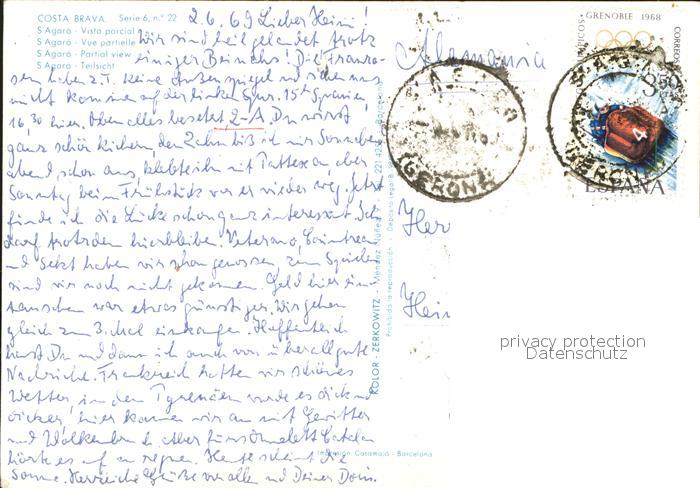 COSTA BRAVA Serie 6, n.º 22
S'Agaró - Vista parcial
S'Agaró - Vue partielle
S'Agaró - Partial view
S'Agaró - Teilsicht
2.6.69 Lieber Heini!
Wir sind heil gelandet trotz
einiger Beinahs! Die Franzo-
sen haben z.T. keine Außenspiegel und sehen
nicht kommen auf der linken Spur. 15h Spanien,
16,30 hier. Oben alles besetzt 2-A. Du wirst
ganz schön kichern, den Zahn biß ich mir Sonnabend
abend schon aus, klebte ihn mit Pattex an, aber
Sonntag beim Frühstück war er wieder weg. Jetzt
finde ich die Lücke schon ganz interessant. Ich
darf trotzdem hierbleiben. Veterano, Cointreau
und Sekt haben wir schon genossen, zum Spielen
sind wir noch nicht gekommen. Geld hier ein-
tauschen war etwas günstiger. Wir gehen
gleich zum 3. Mal einkaufen. Hoffentlich
hast Du und dann ich auch von überall gute
Nachricht. Frankreich hatten wir schönes
Wetter, in den Pyrenäen wurde es dick und
dicker, hier kamen wir an mit Gewitter
und Wolkenbruch, aber
hörte es auf zu regnen. Heute scheint die
Sonne. Herzliche Grüße von allen und Deiner
KOLOR - ZERKOWITZ
Prohibida la reproducción
Impresión Casamajó - Barcelona
Alemania
Her
Hein
GRENOBLE 1968
CORREOS
3,50
4
ESPAÑA
(GERONA)
privacy protection
Datenschutz